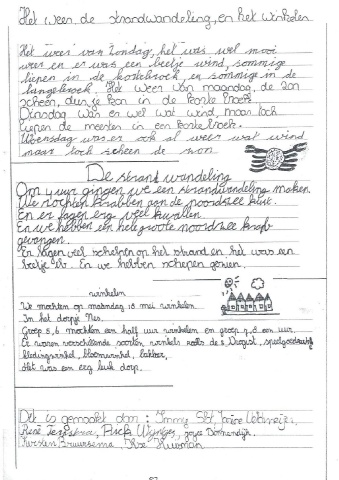 Het weer de strandwandeling, en het winkelen
Het weer van Zondag, het was wel mooi
weer en er was een beetje wind, sommige
liepen in de kortebroek en sommige in de
langebroek. Het weer van maandag, de zon
scheen, dus je kon in de korte broek.
Dinsdag was er wel wat wind, maar toch
liepen de meesten in een korte broek.
Woensdag was er ook al weer wat wind
maar toch scheen de zon
De strandwandeling
Om 4 uur gingen we een strandwandeling maken.
We zochten krabben aan de noordzee kust.
En er lagen erg veel kwallen
En we hebben een hele grote noordzee krab
gevangen.
Er lagen veel schelpen op het strand en het was een
beetje . En we hebben schepen gezien.
winkelen
We mochten op maandag 18 mei winkelen.
In het dorpje Nes.
Groep 5,6 mochten een half uur winkelen en groep 7,8 een uur.
Er waren verschillende soorten winkels zoals de : Drogist, speelgoedwinkel
kledingwinkel, bloemwinkel, bakker,
Het was een erg leuk dorp.
Dit is gemaakt door :
René Puck Wijntjes, Joyce
Kirsten Bruursema,